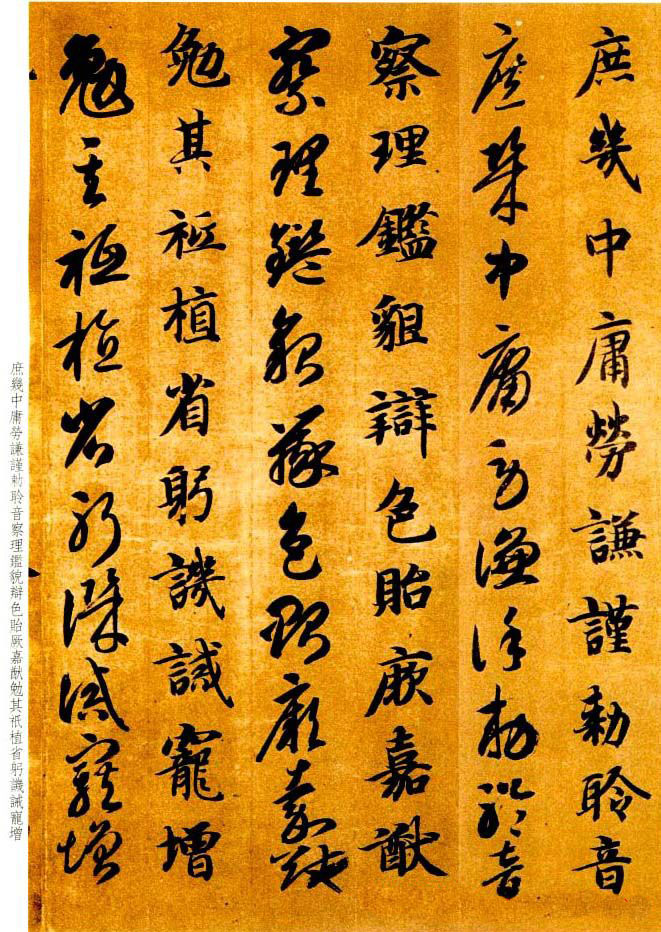 庶幾中庸勞謙謹勅聆音
庶幾中庸勞謙謹勅聆音
察理鑑貌辯色貽厥嘉猷
察理鑑貌辯色貽厥嘉猷
勉其祗植省躬譏誡寵增
勉其祗植省躬譏誡寵增
庶幾中庸勞謙謹勅聆音察理鑑貌辯色貽厥嘉猷勉其祇植省躬譏誡寵增